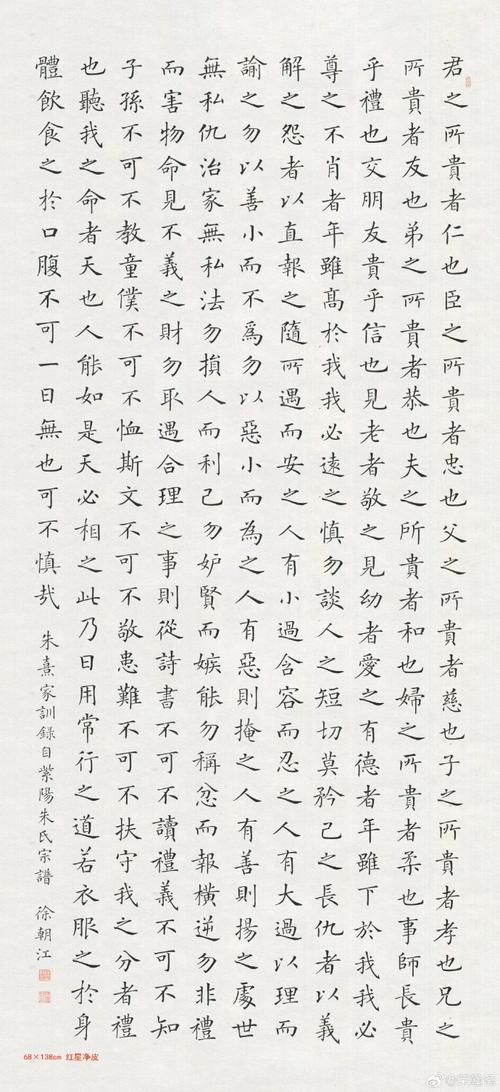 君之所貴者仁也臣之所貴者忠也父之所貴者慈也子之所貴者孝也兄之
所貴者友也弟之所貴者恭也夫之所貴者和也婦之所貴者柔也事師長貴
乎禮也交朋友貴乎信也見老者敬之見幼者愛之有德者年雖下於我我必
尊之不肖者年雖髙於我我必遠之慎勿談人之短切莫矜己之長仇者以義
解之怨者以直報之隨所遇而安之人有小過含容而忍之人有大過以理而
諭之勿以善小而不爲勿以惡小而為之人有惡則掩之人有善則揚之處世
無私仇治家無私法勿損人而利己勿妒賢而嫉能勿稱忿而報橫逆勿非禮
而害物命見不義之財勿取遇合理之事則從詩書不可不讀禮義不可不知
子孫不可不教童僕不可不恤斯文不可不敬患難不可不扶守我之分者禮
也聽我之命者天也人能如是天必相之此乃日用常行之道若衣服之於身
體飲食之於口腹不可一日無也可不慎哉
朱熹家訓錄自紫陽朱氏宗譜 徐朝江
68×138cm 红星净皮